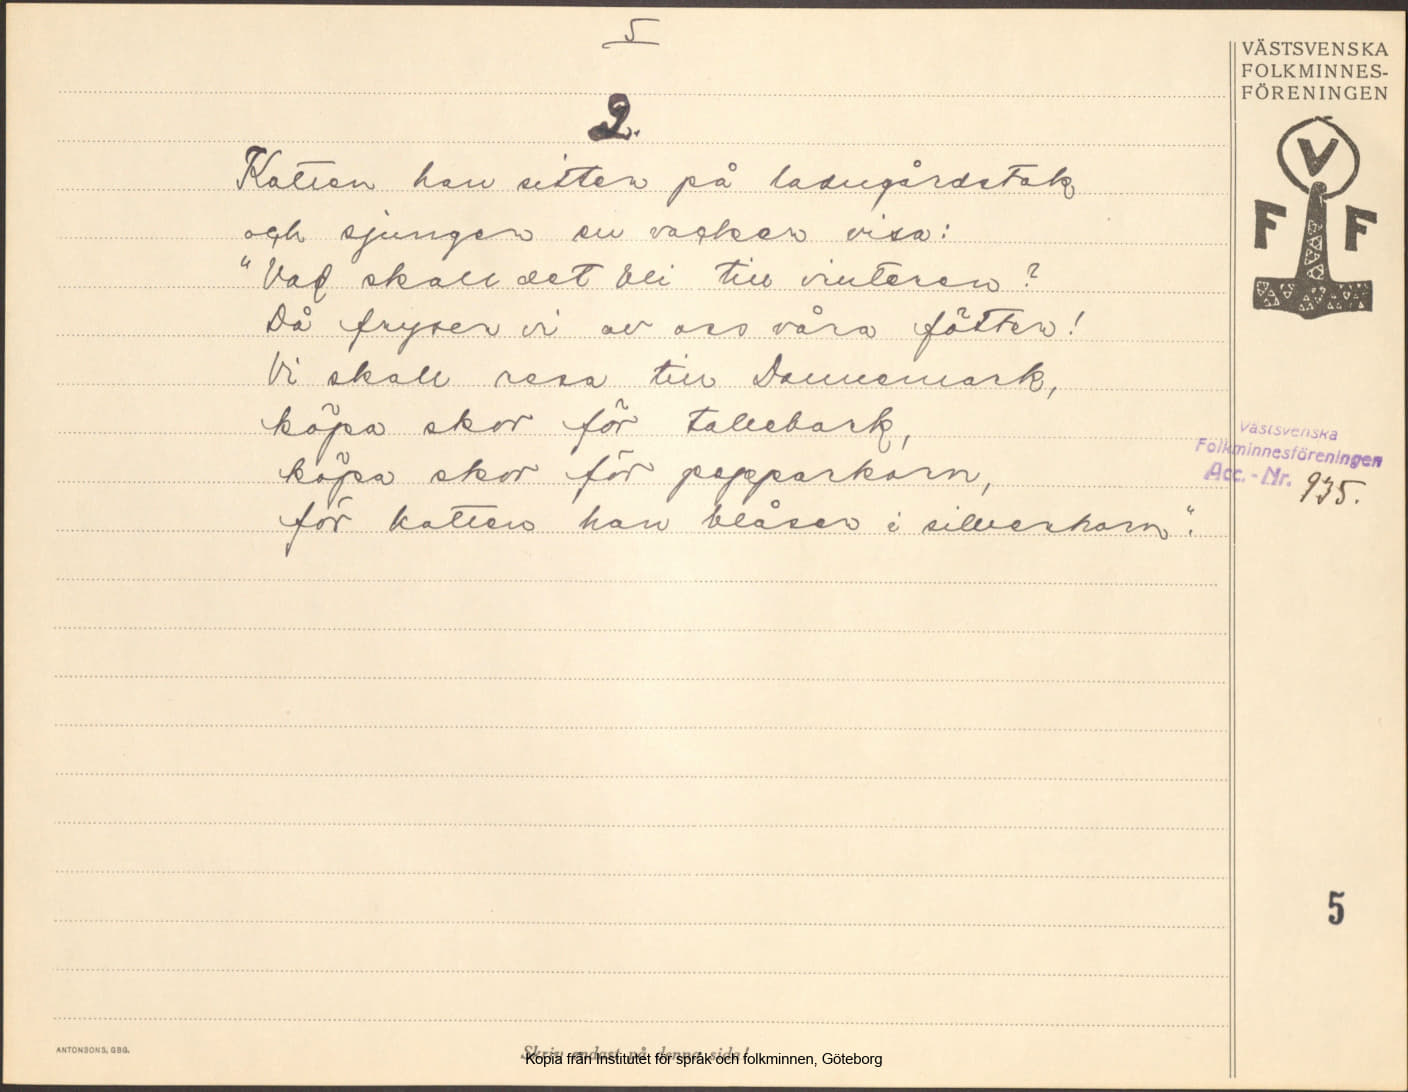 5
2.
Katten han sitter på ladugårdstak
och sjunger en vacker visa:
"Vad skall det bli till vinteren?
Då fryser vi av oss våra fötter!
Vi skall resa till Dannemark,
köpa skor för tallebark,
köpa skor för pepparkorn,
för katten han blåser i silverhorn".
VÄSTSVENSKA
FOLKMINNES-
FÖRENINGEN
V
F F
Västsvenska
Folkminnesföreningen
Acc.-Nr. 935.
5
ANTONSONS, GBG.
Skriv endast på denna sida!
Kopia från Institutet för språk och folkminnen, Göteborg